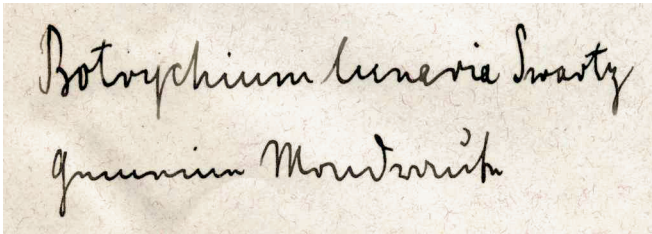 Botrychium lunaria Swartz
gemeine Mondraute